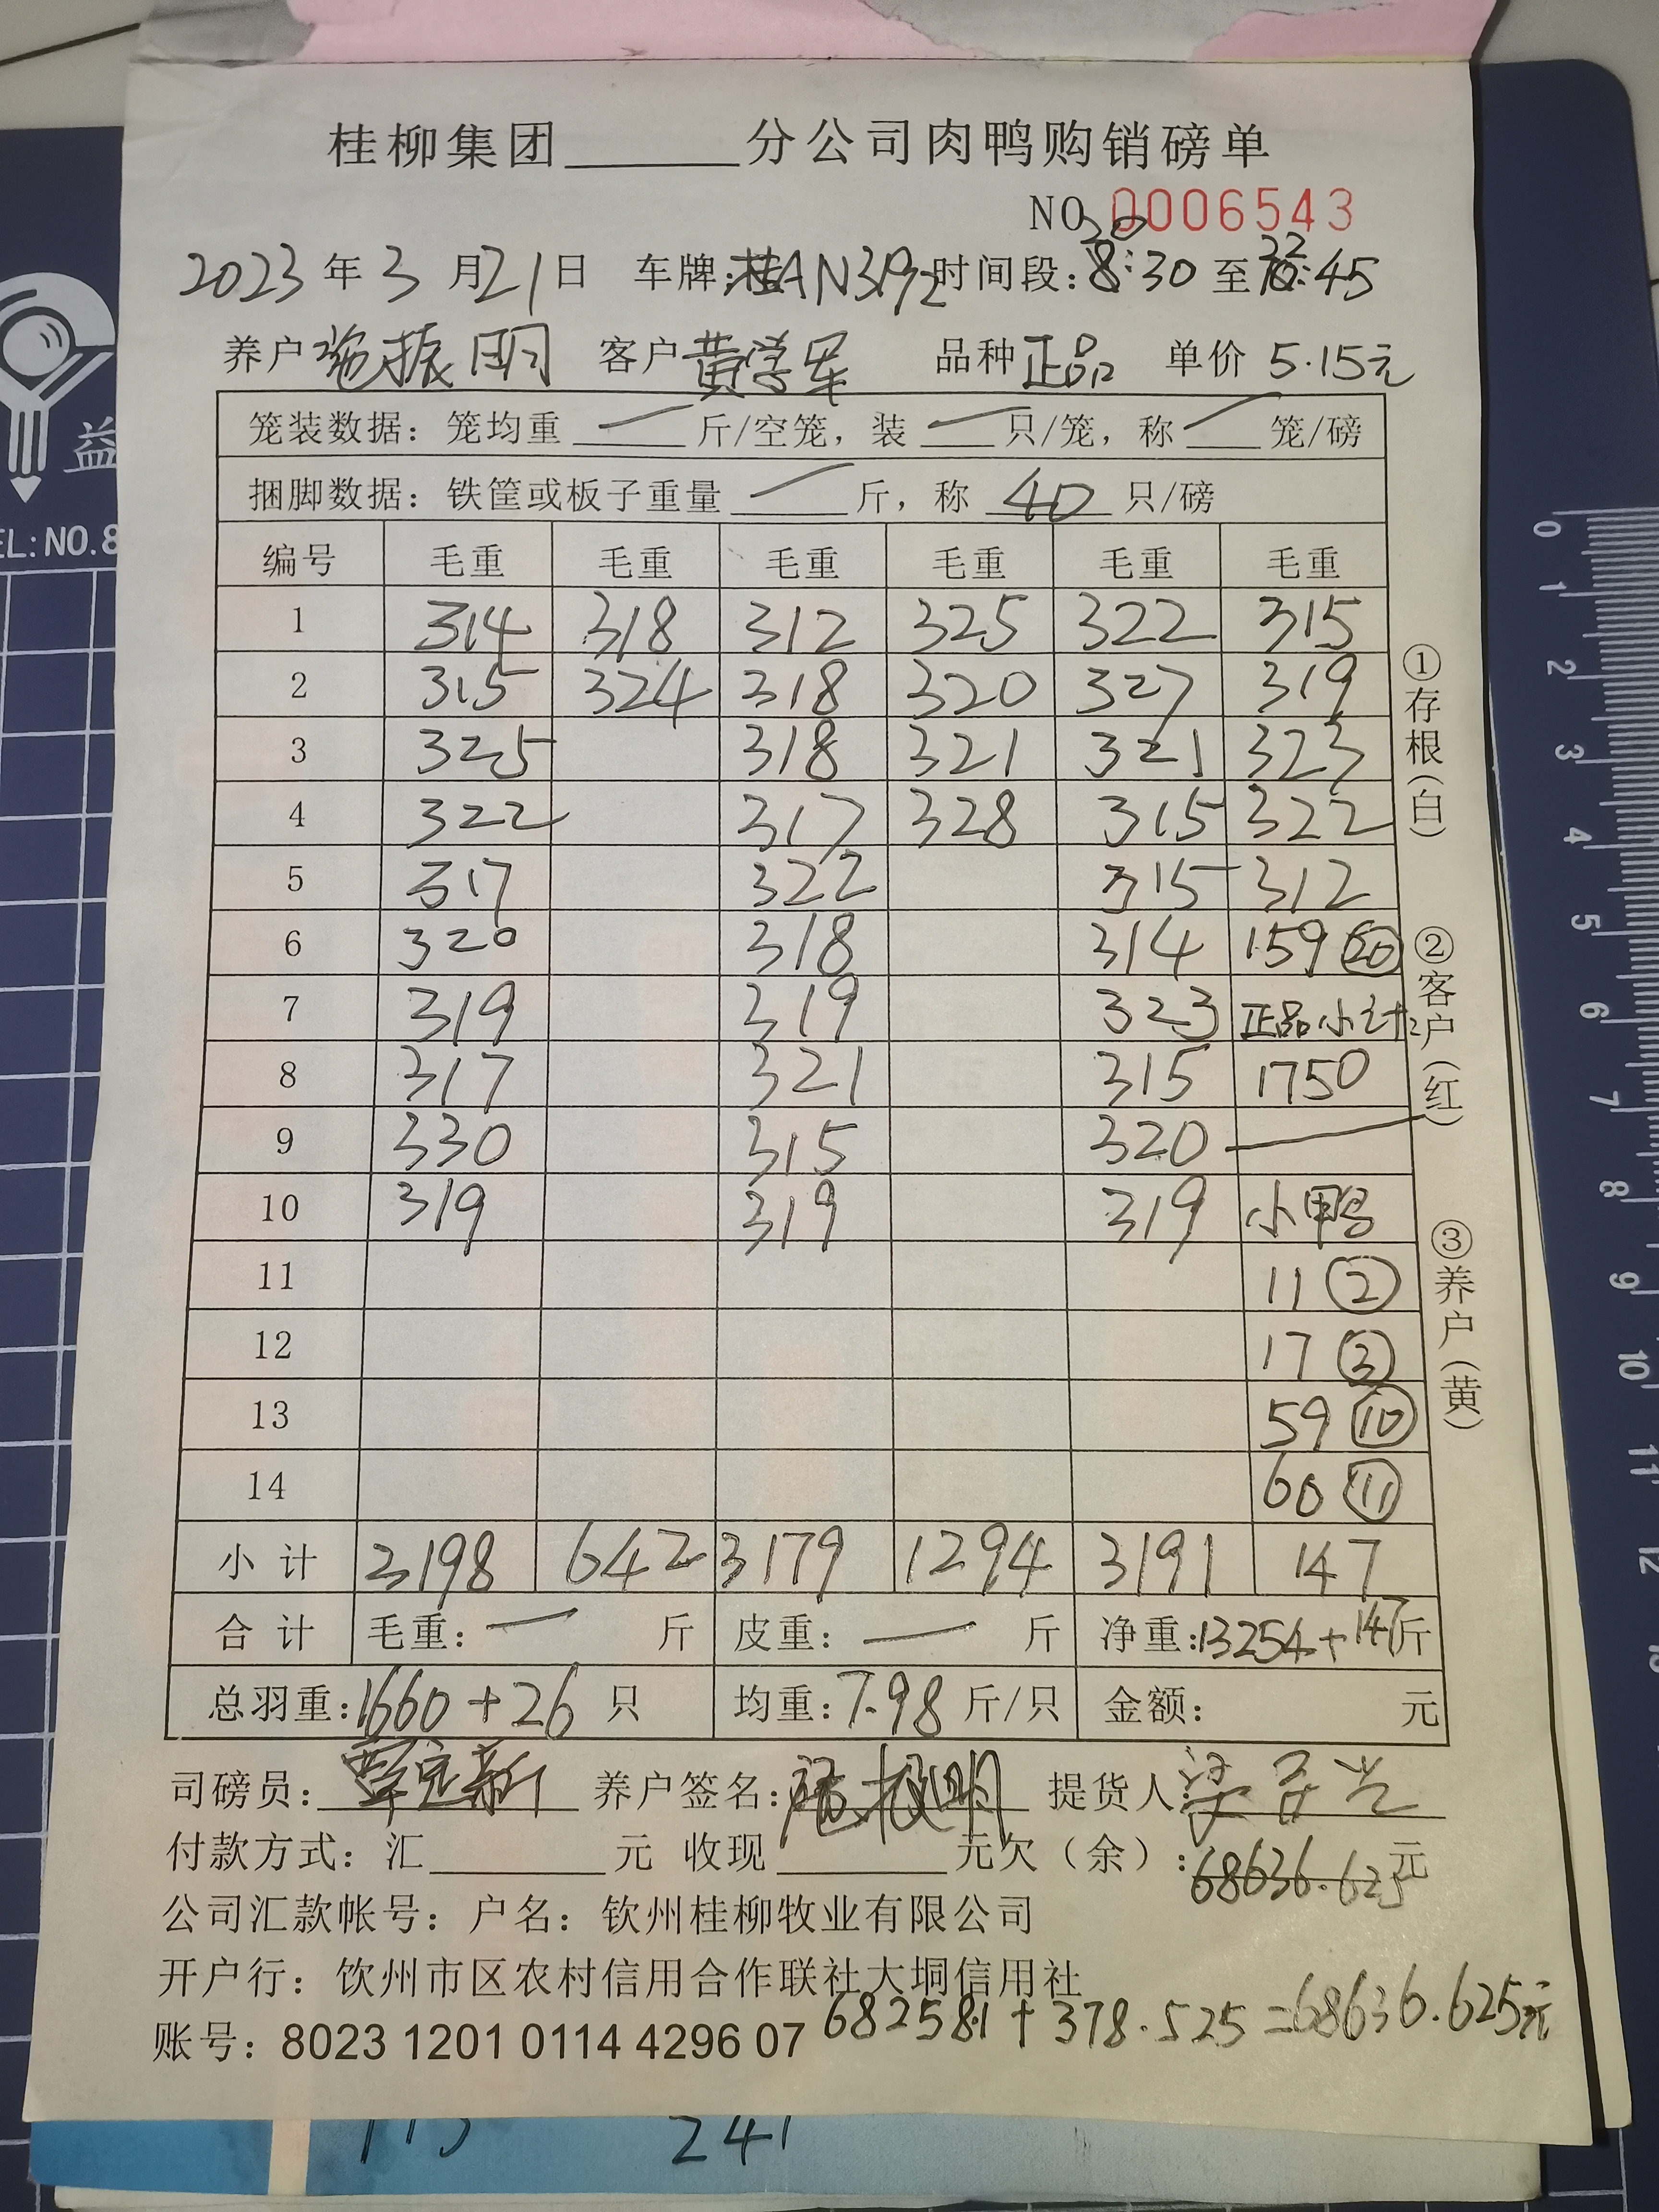 桂柳集团______分公司肉鸭购销磅单
NO 0006543
2023年3月21日 车牌:桂AN3192 时间段:20 8:30至22:45
养户 施振明 客户 黄学军 品种 正品 单价 5.15元
笼装数据：笼均重 — 斤/空笼，装 — 只/笼，称 — 笼/磅
捆脚数据：铁筐或板子重量 — 斤，称 40 只/磅
编号 毛重 毛重 毛重 毛重 毛重 毛重
1 314 318 312 325 322 315
2 315 324 318 320 327 319
3 325 318 321 321 323
4 322 317 328 315 322
5 317 322 315 312
6 320 318 314 159 ⑳
7 319 319 323 正品小计
8 317 321 315 1750
9 330 315 320 —
10 319 319 319 小鸭
11 11 ②
12 17 ③
13 59 ⑩
14 60 ⑪
小计 3198 642 3179 1294 3191 147
合计 毛重：— 斤 皮重：— 斤 净重:13254+147斤
总羽重:1660+26 只 均重:7.98 斤/只 金额： 元
司磅员： 养户签名:施振明 提货人:
付款方式：汇______元 收现______元欠（余）:68636.625元
公司汇款帐号：户名：钦州桂柳牧业有限公司
开户行：饮州市区农村信用合作联社大垌信用社
账号：8023 1201 0114 4296 07 68258.1+378.525=68636.625元
①存根（白）
②客户（红）
③养户（黄）
益
EL:NO.8
0 1 2 3 4 5 6 7 8 9 10 11 12
241